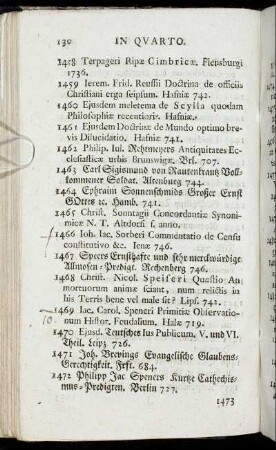 130 IN QVARTO.
1458 Terpageri Ripæ Cimbricæ, Flensburgi
1736.
1459 Ierem. Frid. Reusfii Doctrina de officiis
Christiani erga seipsum. Hafniæ 742.
1460 Ejusdem meletema de Scylla quodam
Philosophiæ recentioris. Hafniæ.
1461 Ejusdem Doctrinæ de Mundo optimo bre-
vis Dilucidatio. Hafniæ, 741.
1462 Philip. Iul. Rehtmeyers Antiquitates Ec-
clesiasticæ urbis Brunswigæ. Brl. 707.
1463 Carl Sigismund von Rautenkrantz Voll-
kommener Soldat. Altenburg 744.
1464 Ephraim Sonnenschmids Großer Ernst
GOttes ꝛc. Hamb. 741.
1465 Christ. Sonntagii Concordantiæ Synony-
micæ N. T. Altdorfi f. anno.
1466 Ioh. Iac. Sorberi Commentatio de Censu
constitutivo &c. Ienæ 746.
1467 Speers Ernsthafte und sehr merckwürdige
Allmosen-Predigt. Rechenberg 746.
1468 Christ. Nicol. Speiseri Quæstio An
mortuorum animæ sciant, num relictis in
his Terris bene vel male sit? Lips. 742.
1469 Iac. Carol. Speneri Primitiæ Observatio-
10 num Histor. Feudalium, Halæ 719.
1470 Ejusd. Teutsches Ius Publicum, V. und VI.
Theil. Leipz 726.
1471 Joh. Brevings Evangelische Glaubens-
Gerechtigkeit. Frft. 684.
1472 Philipp Jac Speners Kurtze Cathechis-
mus-Predigten. Berlin 727.
1473